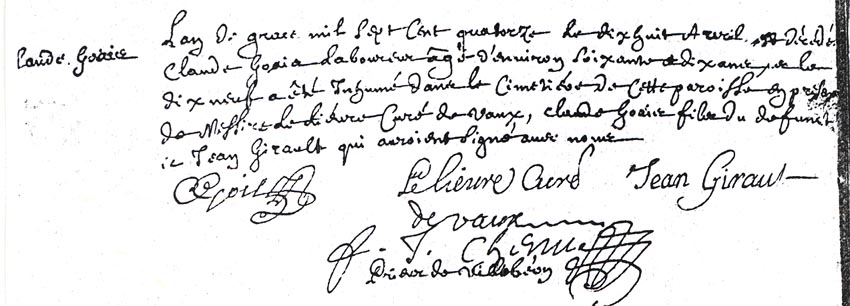 Claude. Goaix
L'an de grace mil sept cent quatorze le dixhuit Avril est décédé
Claude Goaix Laboureur agé d'environ soixante et dix ans, et le
dix neuf a été Inhumé dans le Cimetiere de Cette paroisse en presen
de Messire Le Lièvre Curé de Vaux, Claude Goaix fils du defunct
Jean Girault qui auroient signé avec nous
Lelièvre Curé
Jean Giraut
de vaux
Prieur de Villebéon